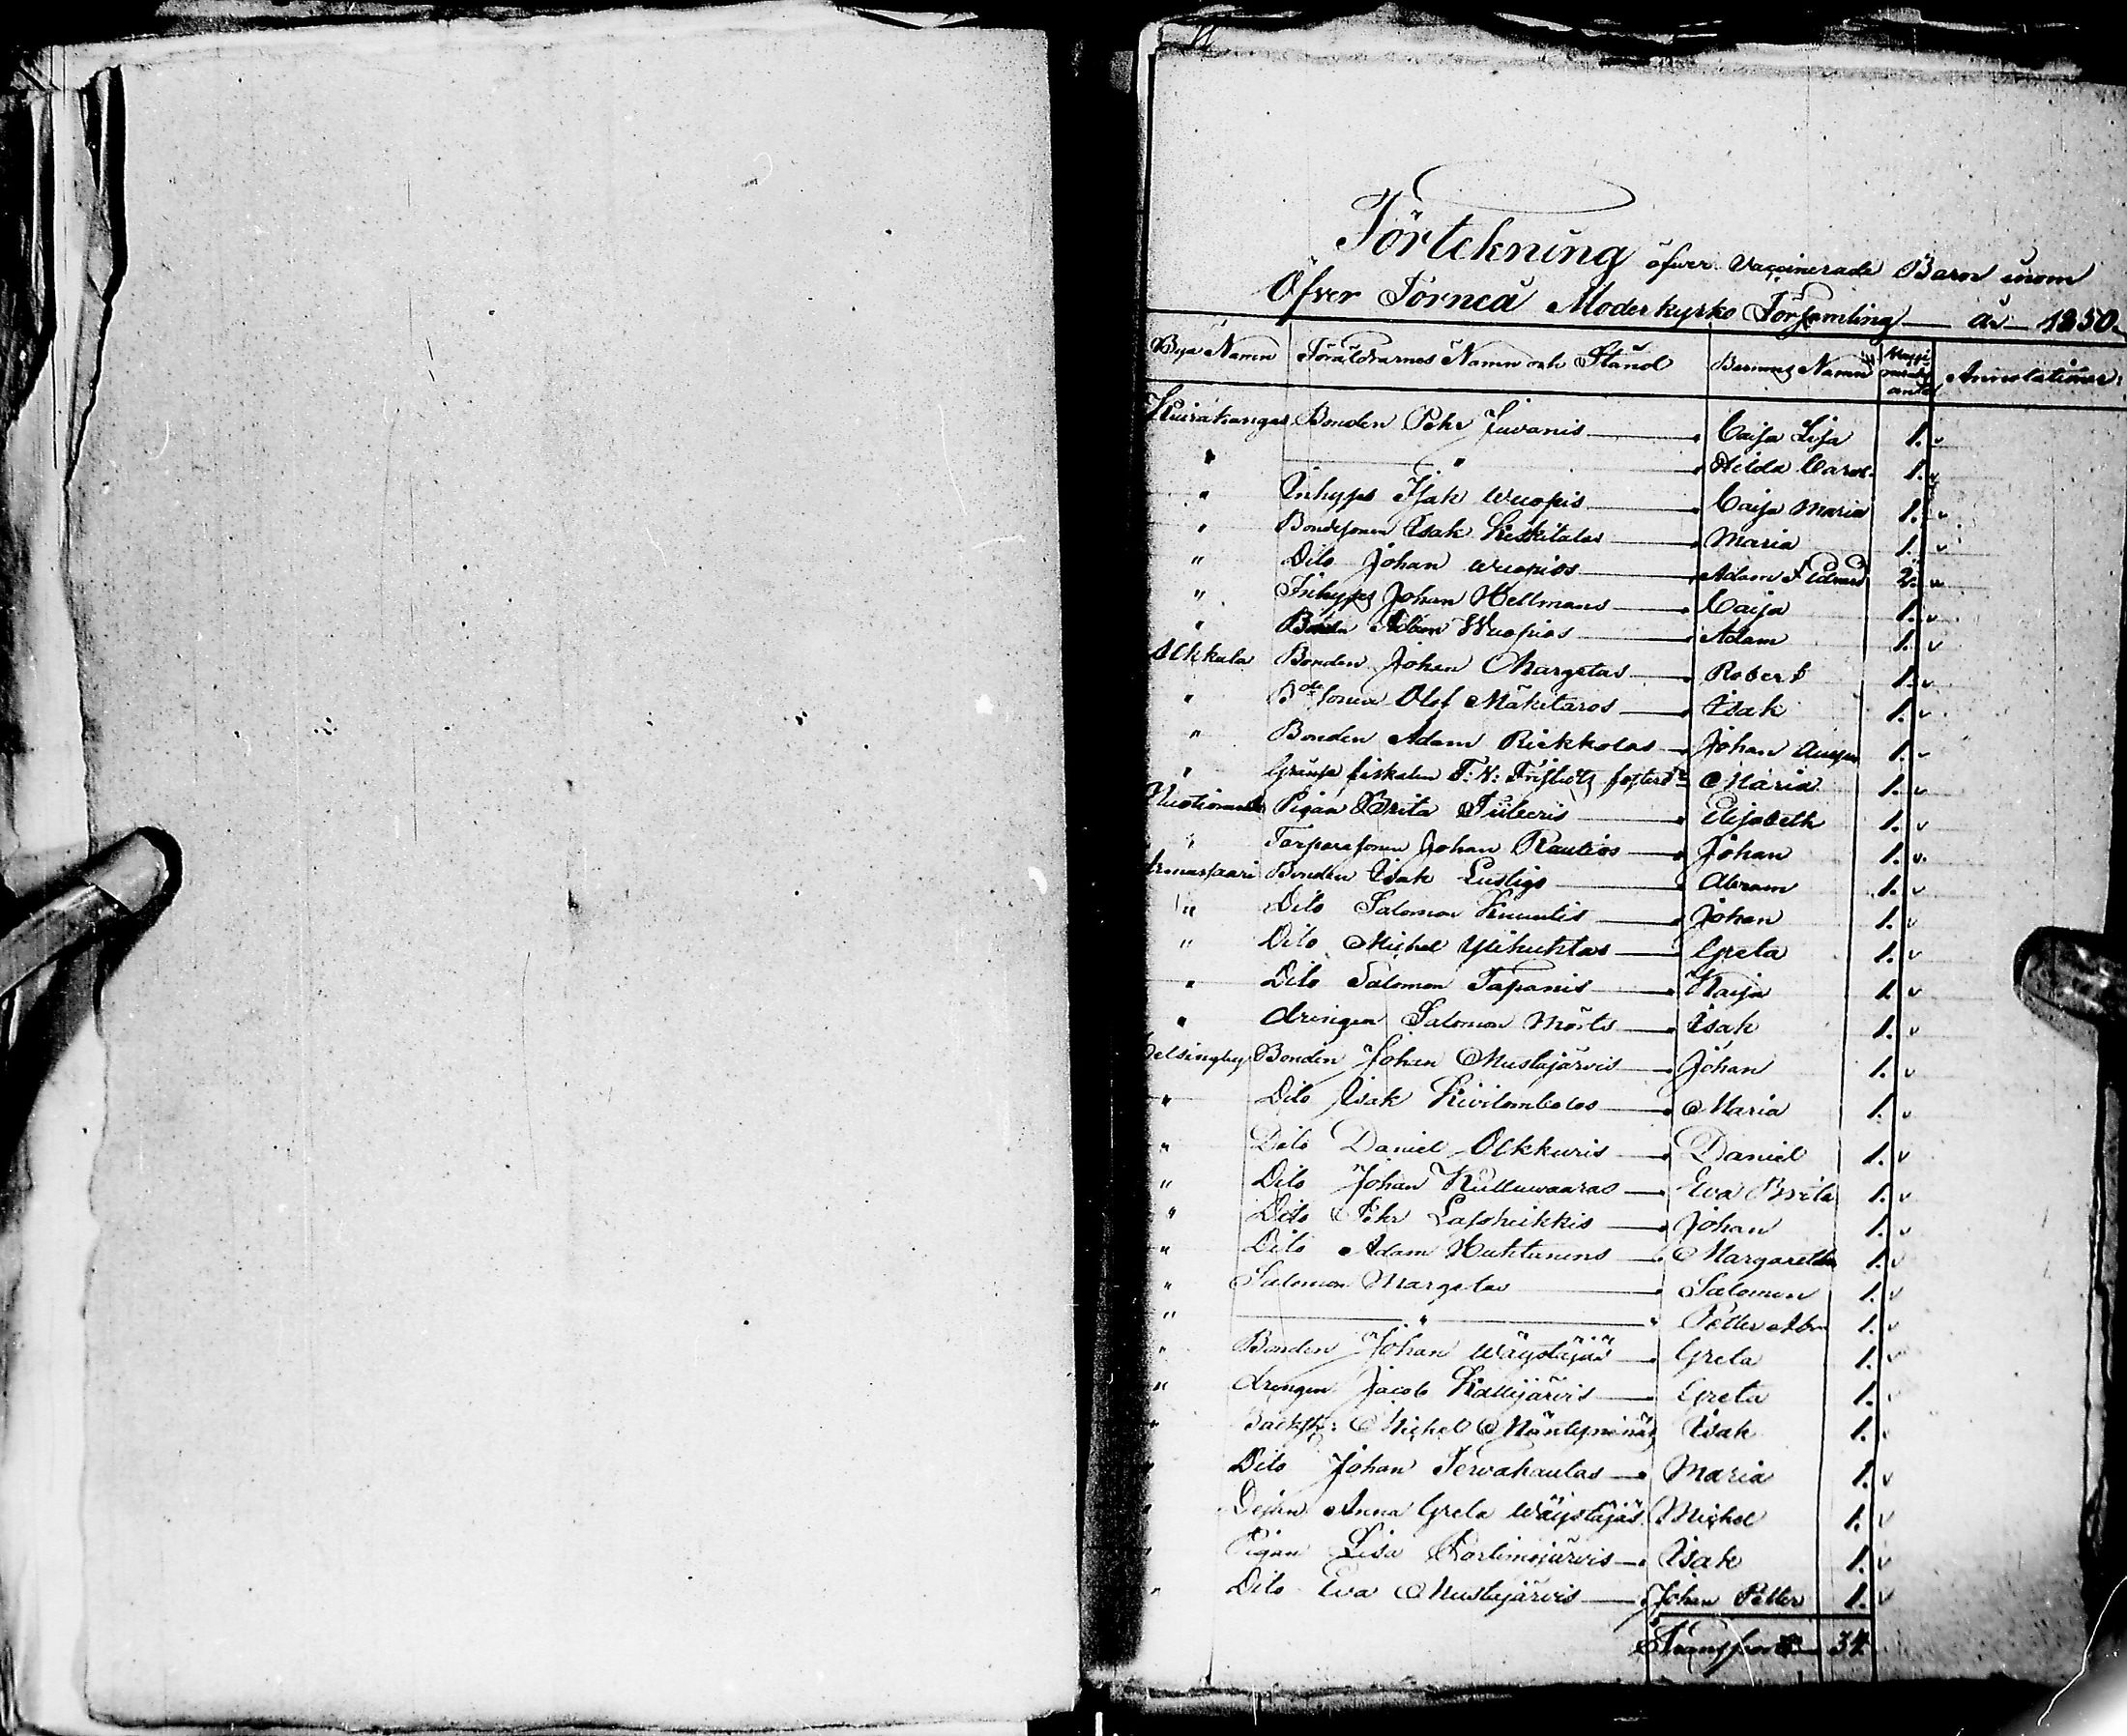 Förtekning öfwer Vaccinerade Barn inom
Öfver Torneå Moderkyrko Församling år 1850.
Bya Namn Föräldrarnes Namn och Stånd Barnens Namn antal Annotationer.
Kuivakangas Bonden Pehr Juvanis Caisa Lisa 1. v
" " Hilda Carol. 1. v
" Inhyses Isak Wuopis Caisa Maria 1. v
" Bondesonen Isak Keskitalos Maria 1. v
" Dito Johan Wuopios Adam & Edvard 2. v
" Inhyses Johan Hellmans Caisa 1. v
" Bonden Wuopios Adam 1. v
Alkkula Bonden Johan Margetas Robert 1. v
" Bde sonen Olof Mäkitaros Isak 1. v
" Bonden Adam Riekkolas Johan August 1. v
" Gränse fiskalen Maria 1. v
Pigan Brita Elisabeth 1. v
" Torparesonen Johan Rautios Johan 1. v
Armassaari Bonden Isak Lustigs Abram 1. v
" Dito Salomon Knuutis Johan 1. v
" Dito Michel Ylikuhtas Greta 1. v
" Dito Salomon Tapanis Kaisa 1. v
" drengen Salomon Mörts Isak 1. v
Helsingby Bonden Johan Mustajärvis Johan 1. v
" Dito Isak Kivilombolos Maria 1. v
" Dito Daniel Alkkuris Daniel 1. v
" Dito Johan Kulluwaaras Eva Brita 1. v
" Dito Pehr Johan 1. v
" Dito Adam Huhtanens Margaretha 1. v
" Salomon Margetas Salomon 1. v
" " Petter Abr. 1. v
" Bonden Johan Wäystäjäs Greta 1. v
" drengen Jacob Kallijärvis Greta 1. v
" Backst: Michel Isak 1. v
" Dito Johan Tervahautas Maria 1. v
" Anna Greta Wäystäjäs Michel 1. v
" Pigan Lisa Portimojärvis Isak 1. v
" Dito Eva Mustajärvis Johan Petter 1. v
Transport 34